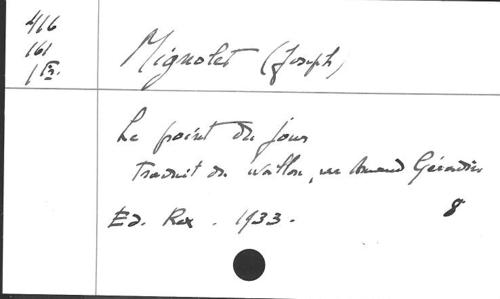 416
161
1 Ex.
Mignolet (Joseph)
Le point du jour
Traduit du wallon, par Armand Géradin
8
Ed. Rex. 1933.